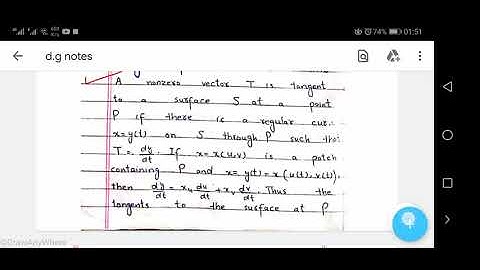 74% 01:51
d.g notes
A nonzero vector T is tangent
to a surface S at a point
P if there is a regular cur
x=y(t) on S through P such that
T = dy/dt. If x=x(u,v) is a patch
containing P and x= y(t)=x(u(t),v(t).
then dy/dt = xu du/dt + xv dv/dt. Thus the
tangents to the surface at P
DrawAnyWhere